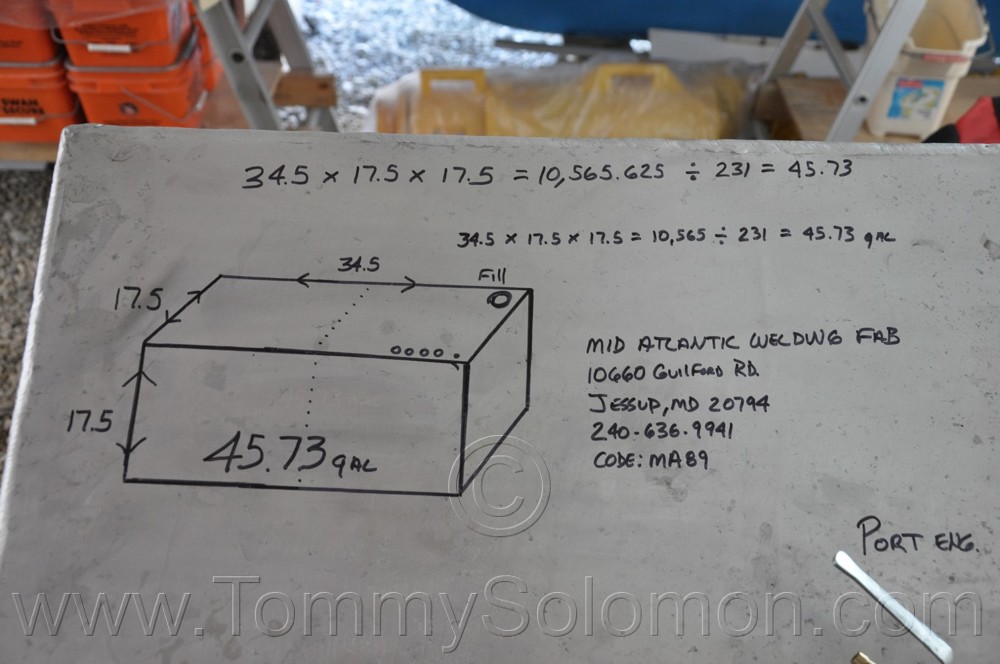 SWAN
SECURE
34.5 × 17.5 × 17.5 = 10,565.625 ÷ 231 = 45.73
34.5 × 17.5 × 17.5 = 10,565 ÷ 231 = 45.73 gAL
34.5
Fill
17.5
17.5
45.73 gAL
MID ATLANTIC WELDING FAB
10660 GUILFORD RD.
JESSUP, MD 20794
240-636-9941
CODE: MA89
PORT ENG.
©
www.TommySolomon.com